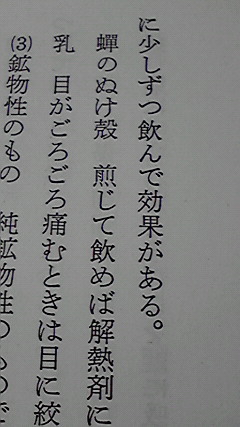 に少しずつ飲んで効果がある。
蟬のぬけ殻　煎じて飲めば解熱剤に
乳　目がごろごろ痛むときは目に絞
⑶鉱物性のもの　純鉱物性のもので